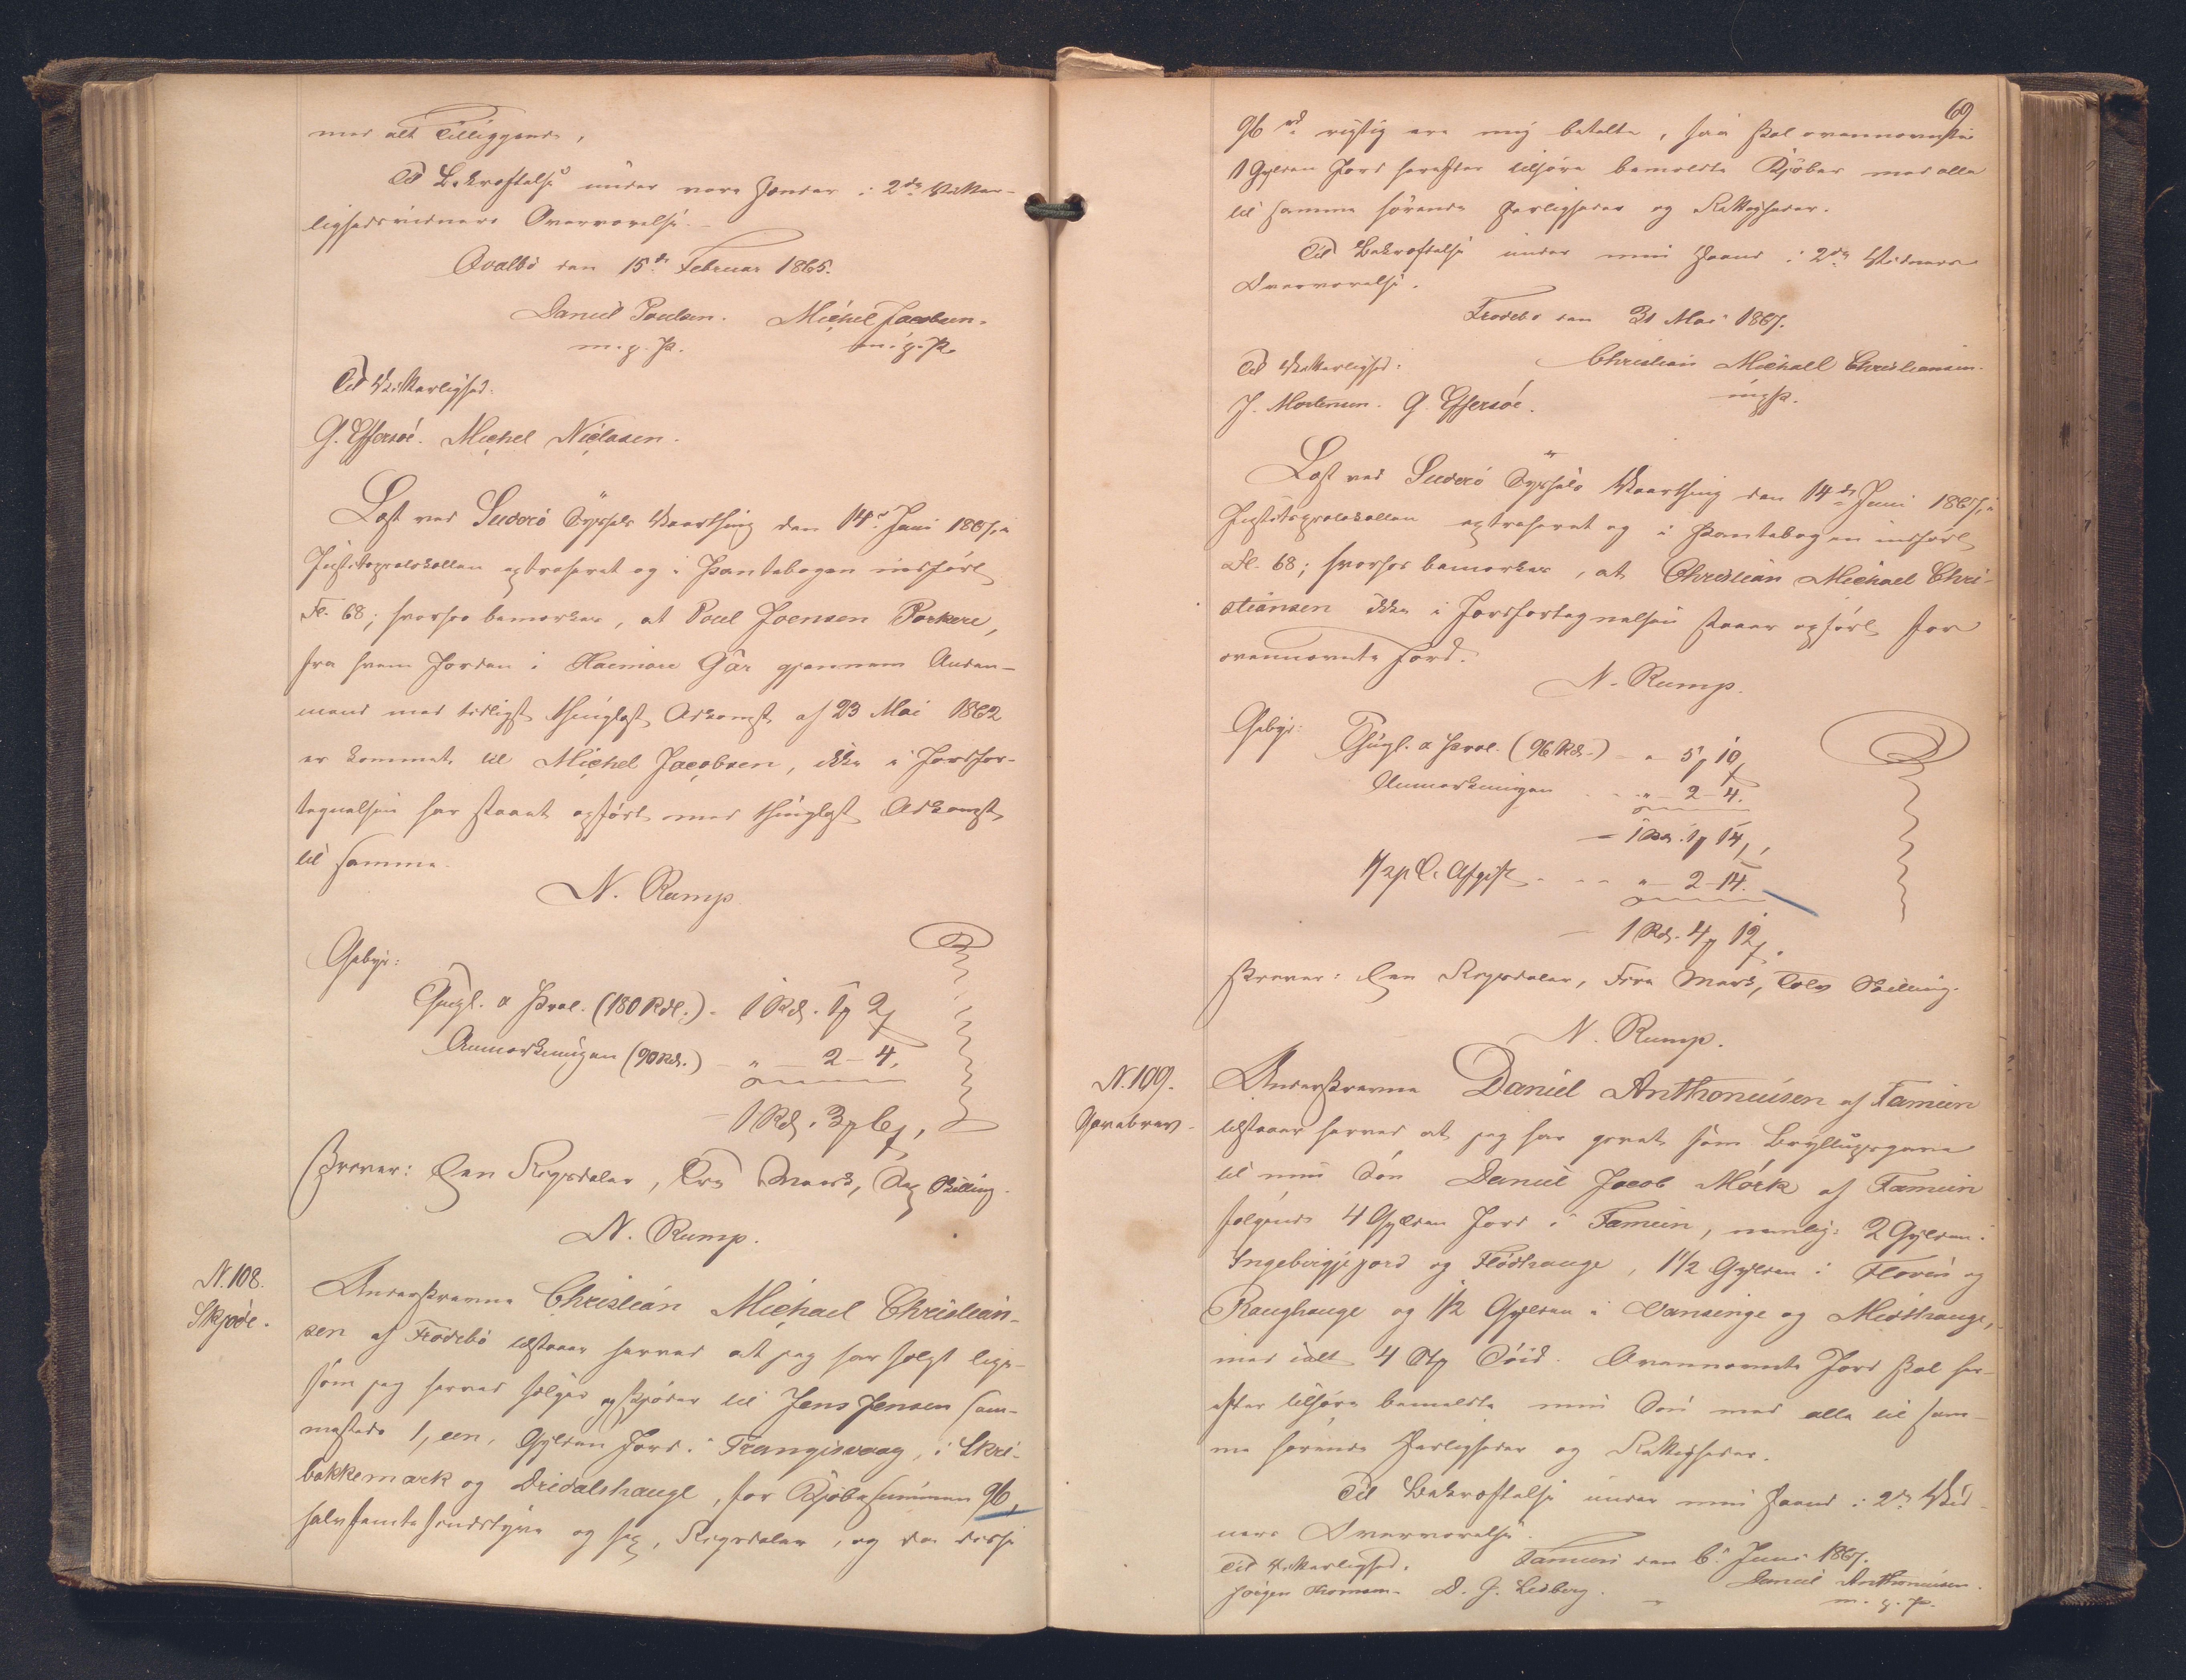 med alt Tilliggende,
Til Bekræftelse under vore Hænder i 2de Vitter-
lighedsvidners Overværelse.
Qvalbö den 15de Februar 1865.
Daniel Poulsen. Michel Jacobsen.
m. p. P. m. p. P.
Til Vitterlighed:
G. Effersöe. Michel Niclasen.
Læst ved Suderö Syssels Vaarthing den 14de Juni 1867, i
Justitsprotokollen extraheret og i Pantebogen indført
Fl. 68; hvorhos bemærkes, at Poul Joensen Porkere,
fra hvem Jorden i Haemare Gár gjennem Anden-
mand med tidligst thinglæst Adkomst af 23 Mai 1862
er kommet til Michel Jacobsen, ikke i Jordfor-
tegnelsen har staaet opført med thinglæst Adkomst
til samme.
N. Rump
Gebyr:
Thingl. a Prot. (180 Rdl.) - 1 Rd. 1 p 2 f
Anmærkningen (90 Rd.) - " - 2 - 4.
- 1 Rd. 3 p 6 f,
skriver: Een Rigsdaler, Tre Mark, Sex Skilling.
N. Rump.
N. 108.
Skjøde.
Underskrevne Christian Michael Christian-
sen af Frodebö tilstaaer herved at jeg har solgt lige-
som jeg herved sælger og skjöder til Jens Jensen sam-
mesteds 1, een, Gylden Jord i Trangisvaag, i Skri-
bakkemark og Dridalshauge, for Kjöbesummen 96,
halvfemtesindstyve og sex, Rigsdaler, og da disse
69
96 rd rigtig ere mig betalte, saa skal ovennævnte
1 Gylden Jord herefter tilhøre bemeldte Kjöber med alle
til samme hørende Herligheder og Rettigheder.
Til Bekræftelse under min Haand i 2de Vidners
Overværelse.
Frodebö den 31 Mai 1867.
Til Vitterlighed: Christian Michaell Christiansen.
J. Mortensen. G. Effersöe. m p P.
Læst ved Suderö Syssels Vaarthing den 14de Juni 1867, i
Justitsprotokollen extraheret og i Pantebogen indført
Fl. 68; hvorhos bemærkes, at Christian Michael Chri-
stiansen ikke i Jordfortegnelsen staaer opført for
ovennævnte Jord.
N. Rump.
Gebyr: Thingl. a Prot. (96 Rd.) - " 5 p 10 f
Anmærkningen . . " - 2 - 4.
- 1 Rd. 1 p 14 f,
1/2 p C. Afgift - - - " - 2 - 14.
- 1 Rd. 4 p 12 f.
skriver: Een Rigsdaler, Fire Mark, Tolv Skilling.
N. Rump.
N. 109.
Gavebrev.
Underskrevne Daniel Anthoniusen af Famien
tilstaaer herved at jeg har givet som Bryllupsgave
til min Sön Daniel Jacob Mörk af Famien
følgende 4 Gylden Jord i Famien, nemlig: 2 Gylden i
Ingebirgjejord og Flödhauge, 1 1/2 Gylden i Floren og
Raughauge og 1/2 Gylden i Vansinge og Medhauge,
med ialt 4 Stp Söid. Ovennævnte Jord skal her-
efter tilhöre bemeldte min Sön med alle til sam-
me hørende Herligheder og Rettigheder.
Til Bekræftelse under min Haand i 2de Vid-
ners Overværelse.
Famien den 6te Juni 1867.
Til Vitterlighed. Daniel Anthoniusen.
Joigen Thomsen. D. J. Lidberg. m. p. P.